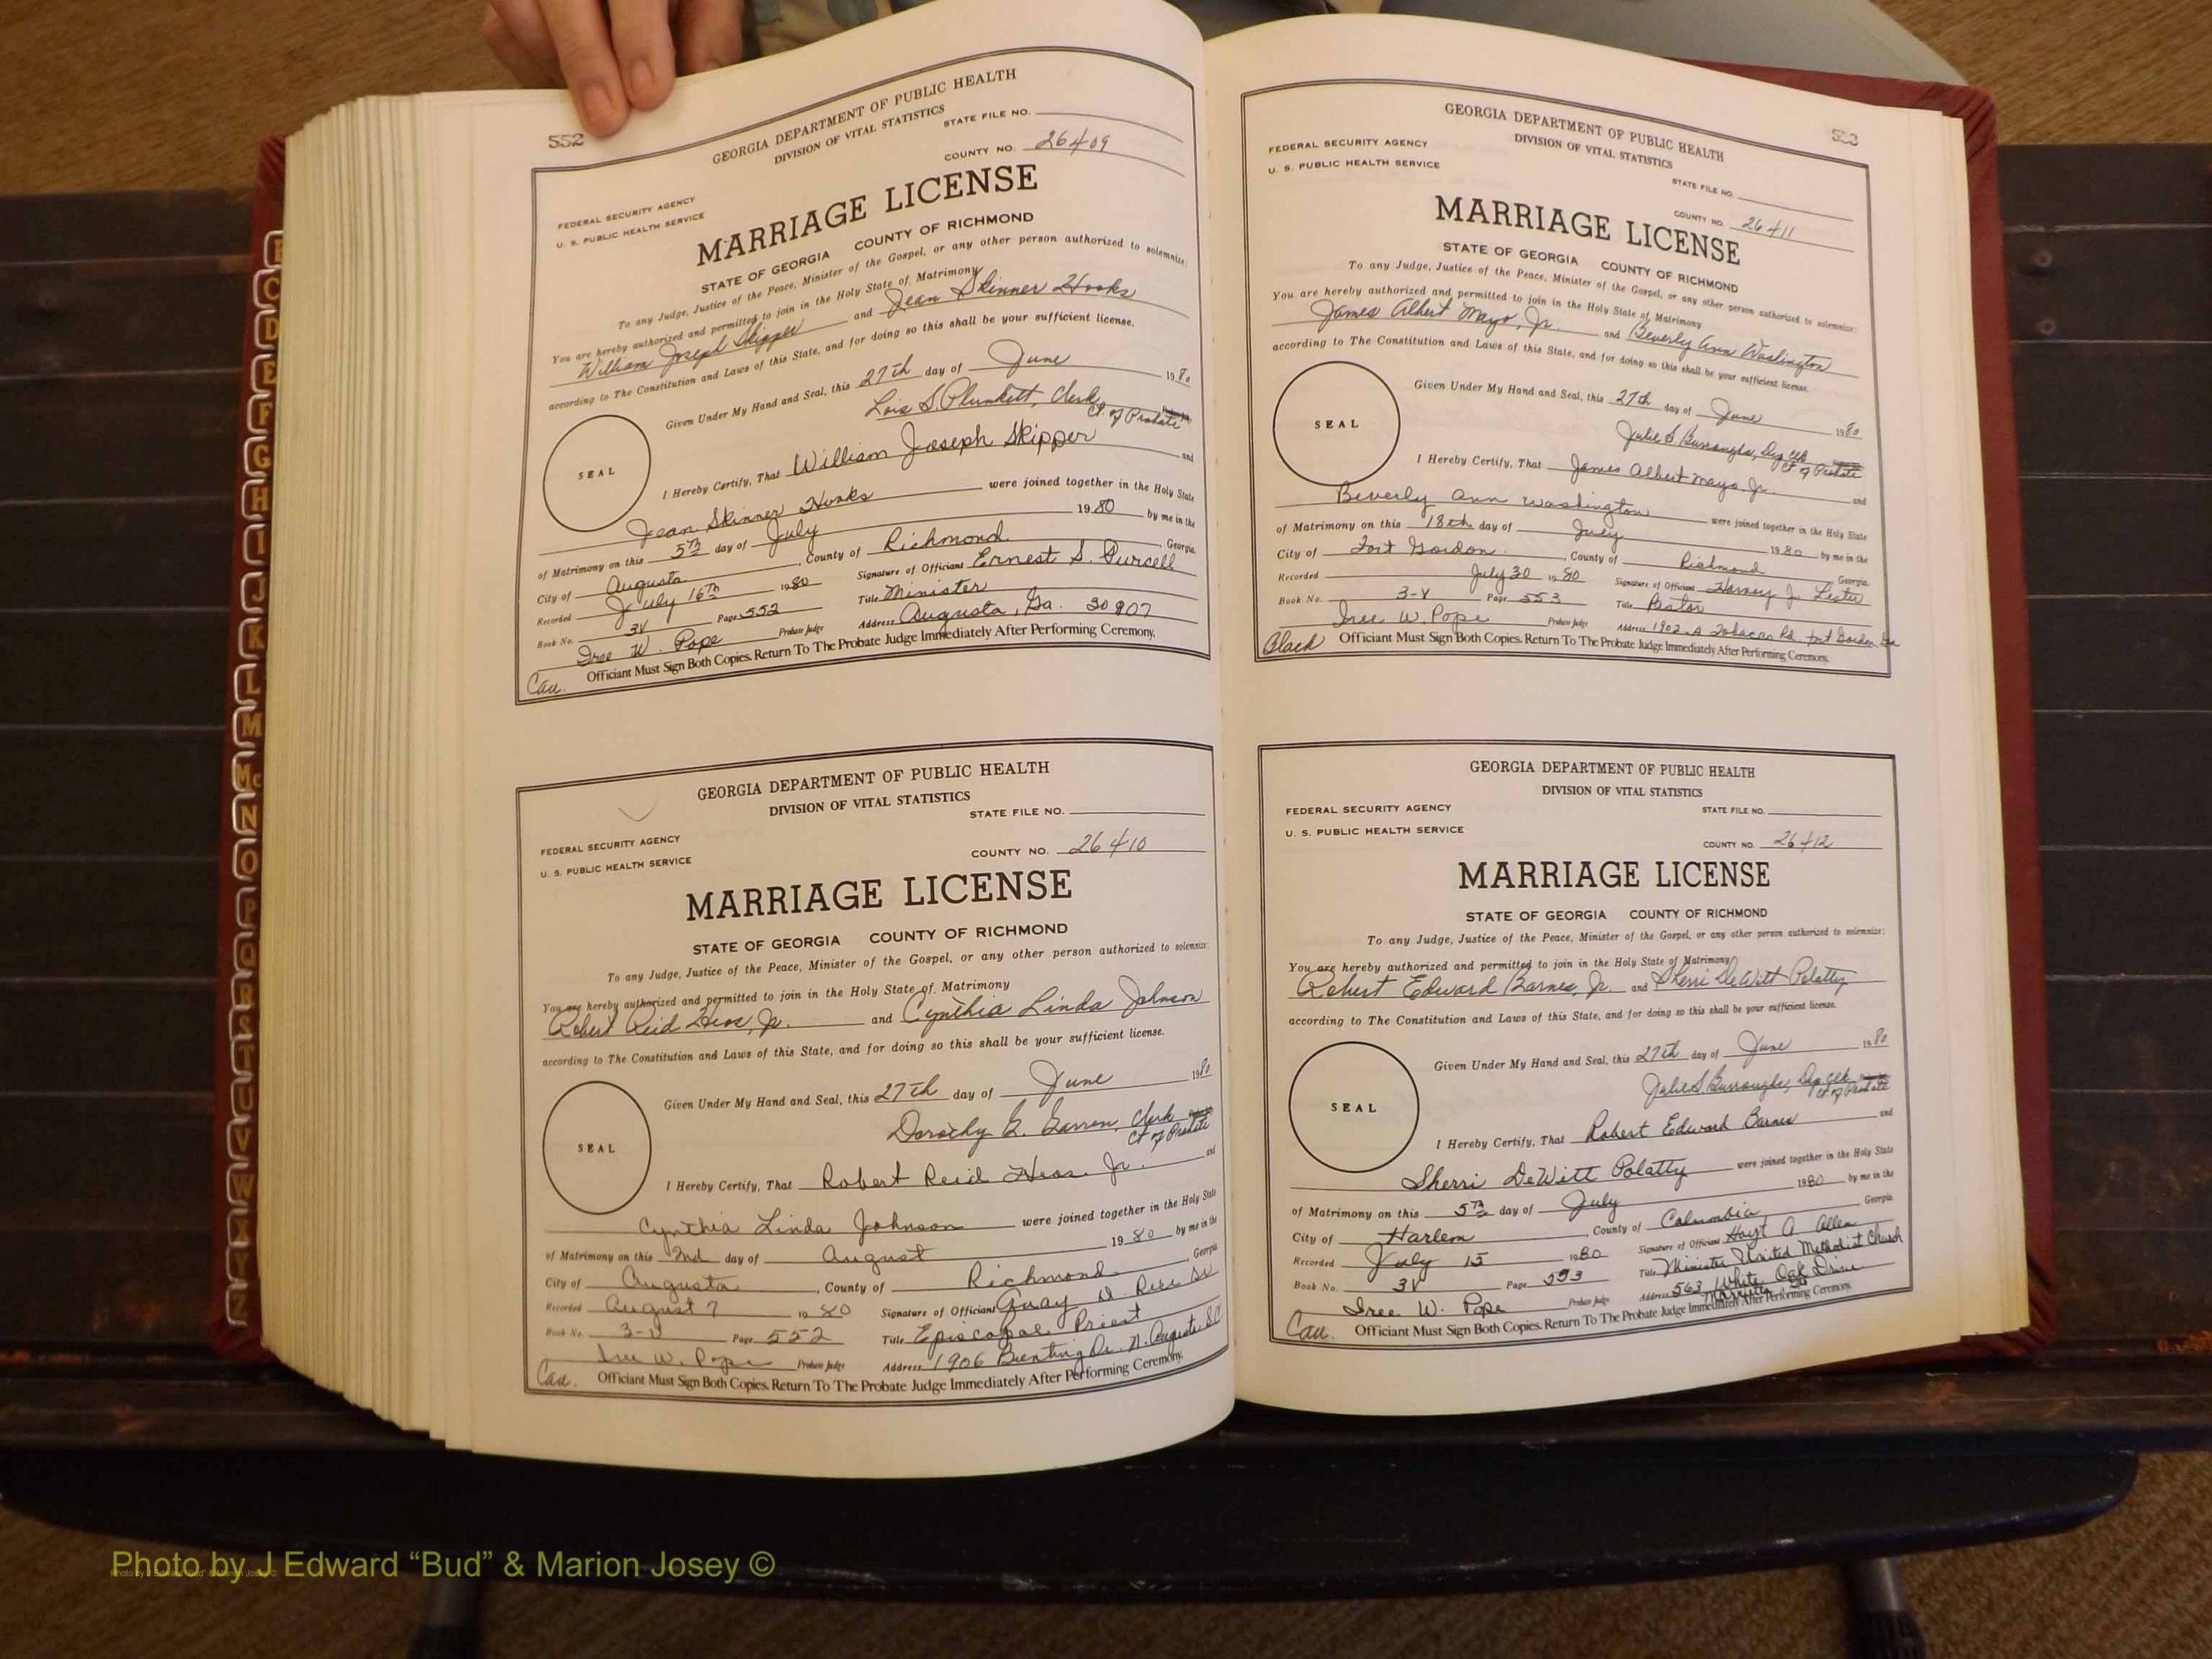 552
GEORGIA DEPARTMENT OF PUBLIC HEALTH
DIVISION OF VITAL STATISTICS
STATE FILE NO.
COUNTY NO. 26409
FEDERAL SECURITY AGENCY
U. S. PUBLIC HEALTH SERVICE
MARRIAGE LICENSE
STATE OF GEORGIA COUNTY OF RICHMOND
To any Judge, Justice of the Peace, Minister of the Gospel, or any other person authorized to solemnize:
You are hereby authorized and permitted to join in the Holy State of Matrimony
William Joseph Skipper and Jean Skinner Hooks
according to The Constitution and Laws of this State, and for doing so this shall be your sufficient license.
Given Under My Hand and Seal, this 27th day of June 1980
Lois S. Plunkett, Clerk
Ct. of Probate
SEAL
I Hereby Certify, That William Joseph Skipper and
Jean Skinner Hooks were joined together in the Holy State
of Matrimony on this 5th day of July 1980 by me in the
City of Augusta, County of Richmond Georgia.
Recorded July 16th 1980 Signature of Officiant Ernest S. Purcell
Book No. 3V Page 552 Title Minister
Iree W. Pope Probate Judge Address Augusta, Ga. 30907
Cau. Officiant Must Sign Both Copies. Return To The Probate Judge Immediately After Performing Ceremony.
GEORGIA DEPARTMENT OF PUBLIC HEALTH
DIVISION OF VITAL STATISTICS
STATE FILE NO.
FEDERAL SECURITY AGENCY
U. S. PUBLIC HEALTH SERVICE
COUNTY NO. 26410
MARRIAGE LICENSE
STATE OF GEORGIA COUNTY OF RICHMOND
To any Judge, Justice of the Peace, Minister of the Gospel, or any other person authorized to solemnize:
You are hereby authorized and permitted to join in the Holy State of Matrimony
Robert Reid Jr. and Cynthia Linda Johnson
according to The Constitution and Laws of this State, and for doing so this shall be your sufficient license.
Given Under My Hand and Seal, this 27th day of June 1980
Dorothy Clerk
Ct of Probate
SEAL
I Hereby Certify, That Robert Reid Jr. and
Cynthia Linda Johnson were joined together in the Holy State
of Matrimony on this 2nd day of August 1980 by me in the
City of Augusta, County of Richmond Georgia
Recorded August 7 1980 Signature of Officiant
Book No. 3-V Page 552 Title Episcopal Priest
Iree W. Pope Probate Judge Address 1906 Dr. N. Augusta S.C.
Cau. Officiant Must Sign Both Copies. Return To The Probate Judge Immediately After Performing Ceremony.
553
GEORGIA DEPARTMENT OF PUBLIC HEALTH
DIVISION OF VITAL STATISTICS
FEDERAL SECURITY AGENCY
U. S. PUBLIC HEALTH SERVICE
STATE FILE NO.
COUNTY NO. 26411
MARRIAGE LICENSE
STATE OF GEORGIA COUNTY OF RICHMOND
To any Judge, Justice of the Peace, Minister of the Gospel, or any other person authorized to solemnize:
You are hereby authorized and permitted to join in the Holy State of Matrimony
James Albert Mayo, Jr. and Beverly Ann Washington
according to The Constitution and Laws of this State, and for doing so this shall be your sufficient license.
Given Under My Hand and Seal, this 27th day of June 1980
Julie S. Burroughs, Dep Clk
Ct of Probate
SEAL
I Hereby Certify, That James Albert Mayo, Jr. and
Beverly Ann Washington were joined together in the Holy State
of Matrimony on this 18th day of July 1980 by me in the
City of Fort Gordon, County of Richmond Georgia.
Recorded July 30 1980 Signature of Officiant Harvey J. Lester
Book No. 3-V Page 553 Title Pastor
Iree W. Pope Probate Judge Address 1902-A Tobacco Rd. Fort Gordon, Ga
Black Officiant Must Sign Both Copies. Return To The Probate Judge Immediately After Performing Ceremony.
GEORGIA DEPARTMENT OF PUBLIC HEALTH
DIVISION OF VITAL STATISTICS
FEDERAL SECURITY AGENCY
STATE FILE NO.
U. S. PUBLIC HEALTH SERVICE
COUNTY NO. 26412
MARRIAGE LICENSE
STATE OF GEORGIA COUNTY OF RICHMOND
To any Judge, Justice of the Peace, Minister of the Gospel, or any other person authorized to solemnize:
You are hereby authorized and permitted to join in the Holy State of Matrimony
Robert Edward Barnes, Jr. and Sherri DeWitt Polatty
according to The Constitution and Laws of this State, and for doing so this shall be your sufficient license.
Given Under My Hand and Seal, this 27th day of June 1980
Julie S. Burroughs, Dep Clk
Ct. of Probate
SEAL
I Hereby Certify, That Robert Edward Barnes and
Sherri DeWitt Polatty were joined together in the Holy State
of Matrimony on this 5th day of July 1980 by me in the
City of Harlem, County of Columbia Georgia.
Recorded July 15 1980 Signature of Officiant Hoyt A Allen
Book No. 3V Page 553 Title Minister United Methodist Church
Iree W. Pope Probate Judge Address 563 White Oak Drive
Cau. Officiant Must Sign Both Copies. Return To The Probate Judge Immediately After Performing Ceremony.
C
D
E
F
G
H
I
J
K
L
M
Mc
N
O
P
Q
R
S
T
U
V
W
X
Y
Z
Photo by J Edward “Bud” & Marion Josey ©